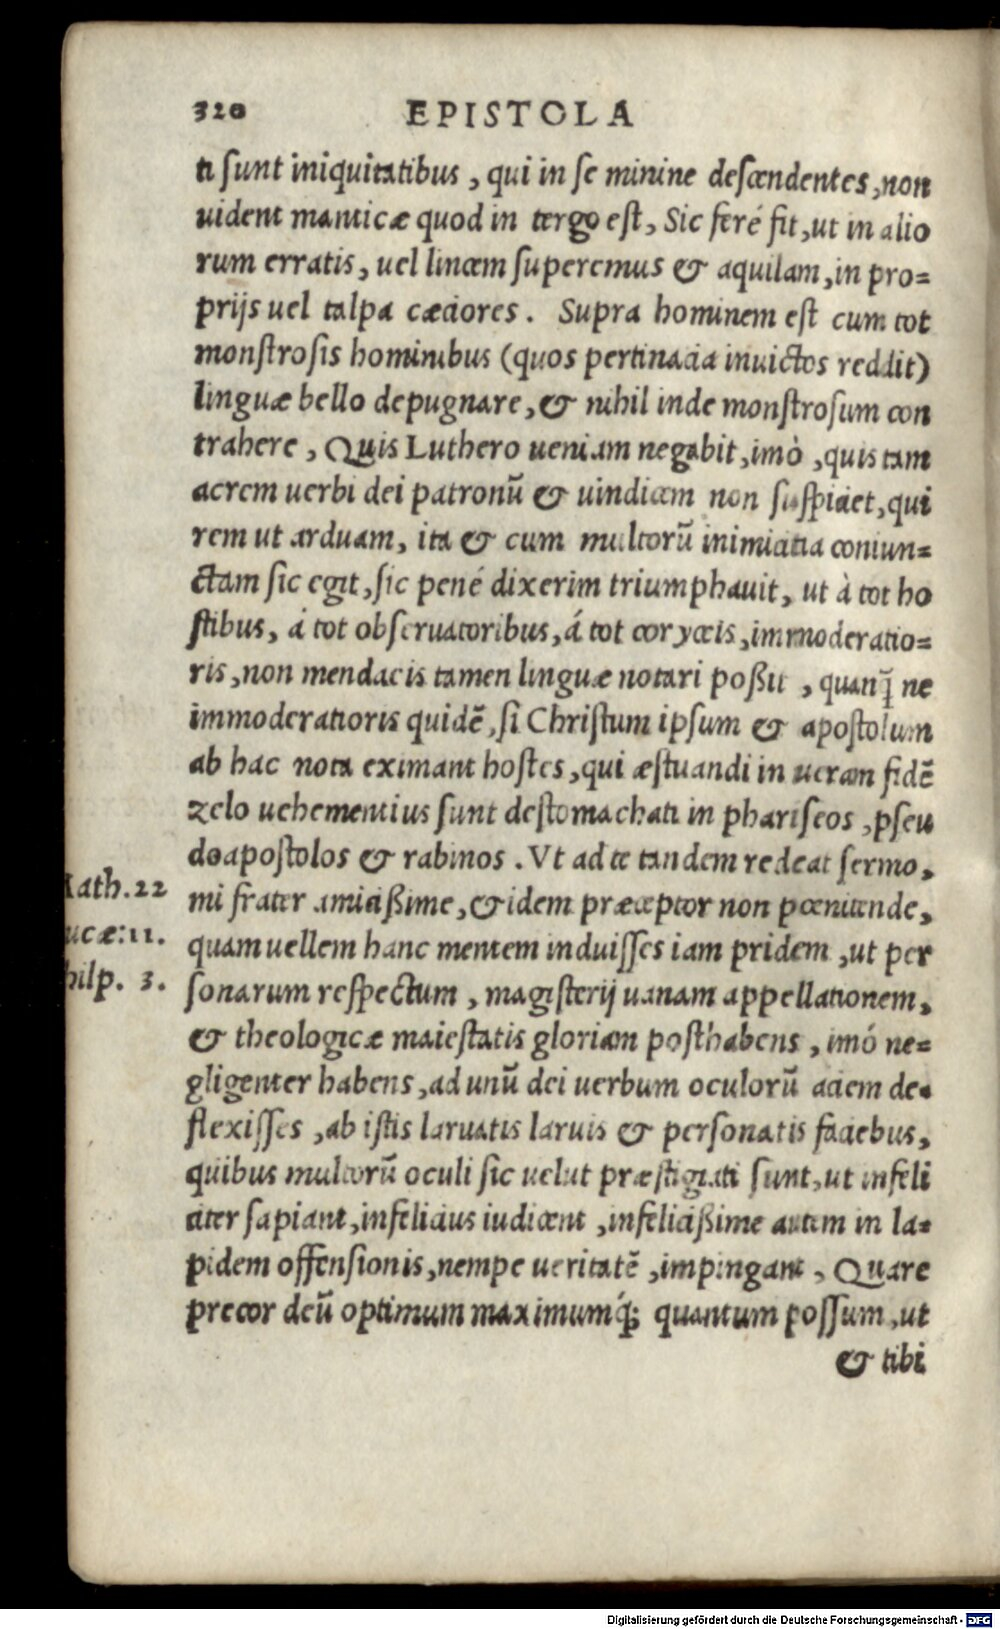 320 EPISTOLA
ti sunt iniquitatibus, qui in se minine descendentes, non
uident manticæ quod in tergo est, Sic feré fit, ut in alio
rum erratis, uel lincem superemus & aquilam, in pro=
prijs uel talpa cæciores. Supra hominem est cum tot
monstrosis hominibus (quos pertinacia inuictos reddit)
linguæ bello depugnare, & nihil inde monstrosum con
trahere, Quis Luthero ueniam negabit, imò, quis tam
acrem uerbi dei patronū & uindicem non suspiciet, qui
rem ut arduam, ita & cum multorū inimicitia coniun=
ctam sic egit, sic pené dixerim triumphauit, ut à tot ho
stibus, á tot obseruatoribus, á tot corycæis, immoderatio=
ris, non mendacis tamen linguæ notari poßit, quanq̄ ne
immoderatioris quidē, si Christum ipsum & apostolum
ab hac nota eximant hostes, qui æstuandi in ueram fidē
zelo uehementius sunt destomachati in phariseos, pseu
doapostolos & rabinos. Vt ad te tandem redeat sermo,
mi frater amicißime, & idem præceptor non pœnitende,
quam uellem hanc mentem induisses iam pridem, ut per
sonarum respectum, magisterij uanam appellationem,
& theologicæ maiestatis gloriam posthabens, imó ne=
gligenter habens, ad unū dei uerbum oculorū aciem de=
flexisses, ab istis laruatis laruis & personatis faciebus,
quibus multorū oculi sic uelut præstigiati sunt, ut infeli
citer sapiant, infelicius iudicent, infelicißime autem in la=
pidem offensionis, nempe ueritatē, impingant, Quare
precor deū optimum maximumq́; quantum possum, ut
& tibi
Math. 22
ucæ: 11.
hilp. 3.
Digitalisierung gefördert durch die Deutsche Forschungsgemeinschaft - DFG